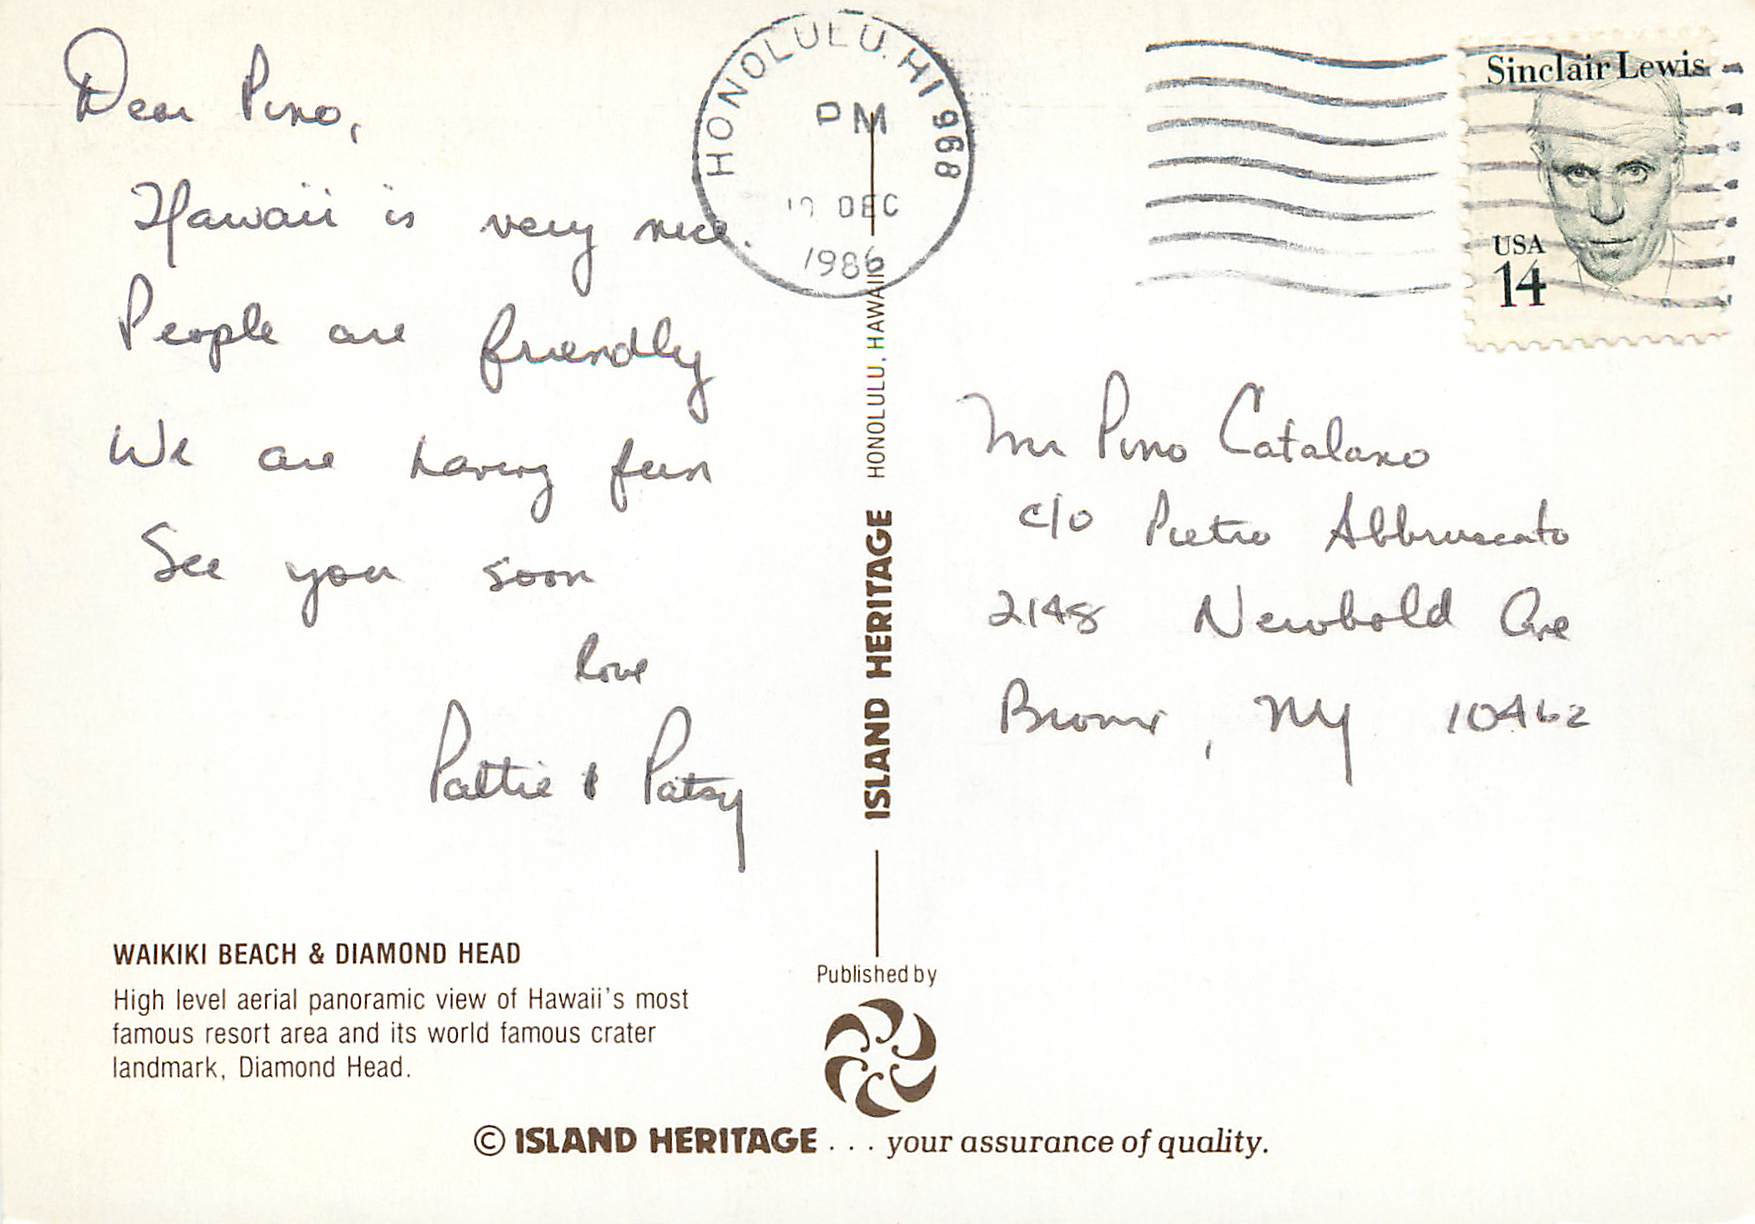 Dear Pino,
Hawaii is very nice.
People are friendly
We are having fun
See you soon
love
Pattie & Patsy
WAIKIKI BEACH & DIAMOND HEAD
High level aerial panoramic view of Hawaii's most
famous resort area and its world famous crater
landmark, Diamond Head.
HONOLULU, HI 968
PM
DEC
1986
ISLAND HERITAGE HONOLULU, HAWAII
Published by
© ISLAND HERITAGE . . . your assurance of quality.
Sinclair Lewis
USA
14
Mr Pino Catalano
c/o Pietro Abbruscato
2148 Newbold Ave
Bronx, NY 10462